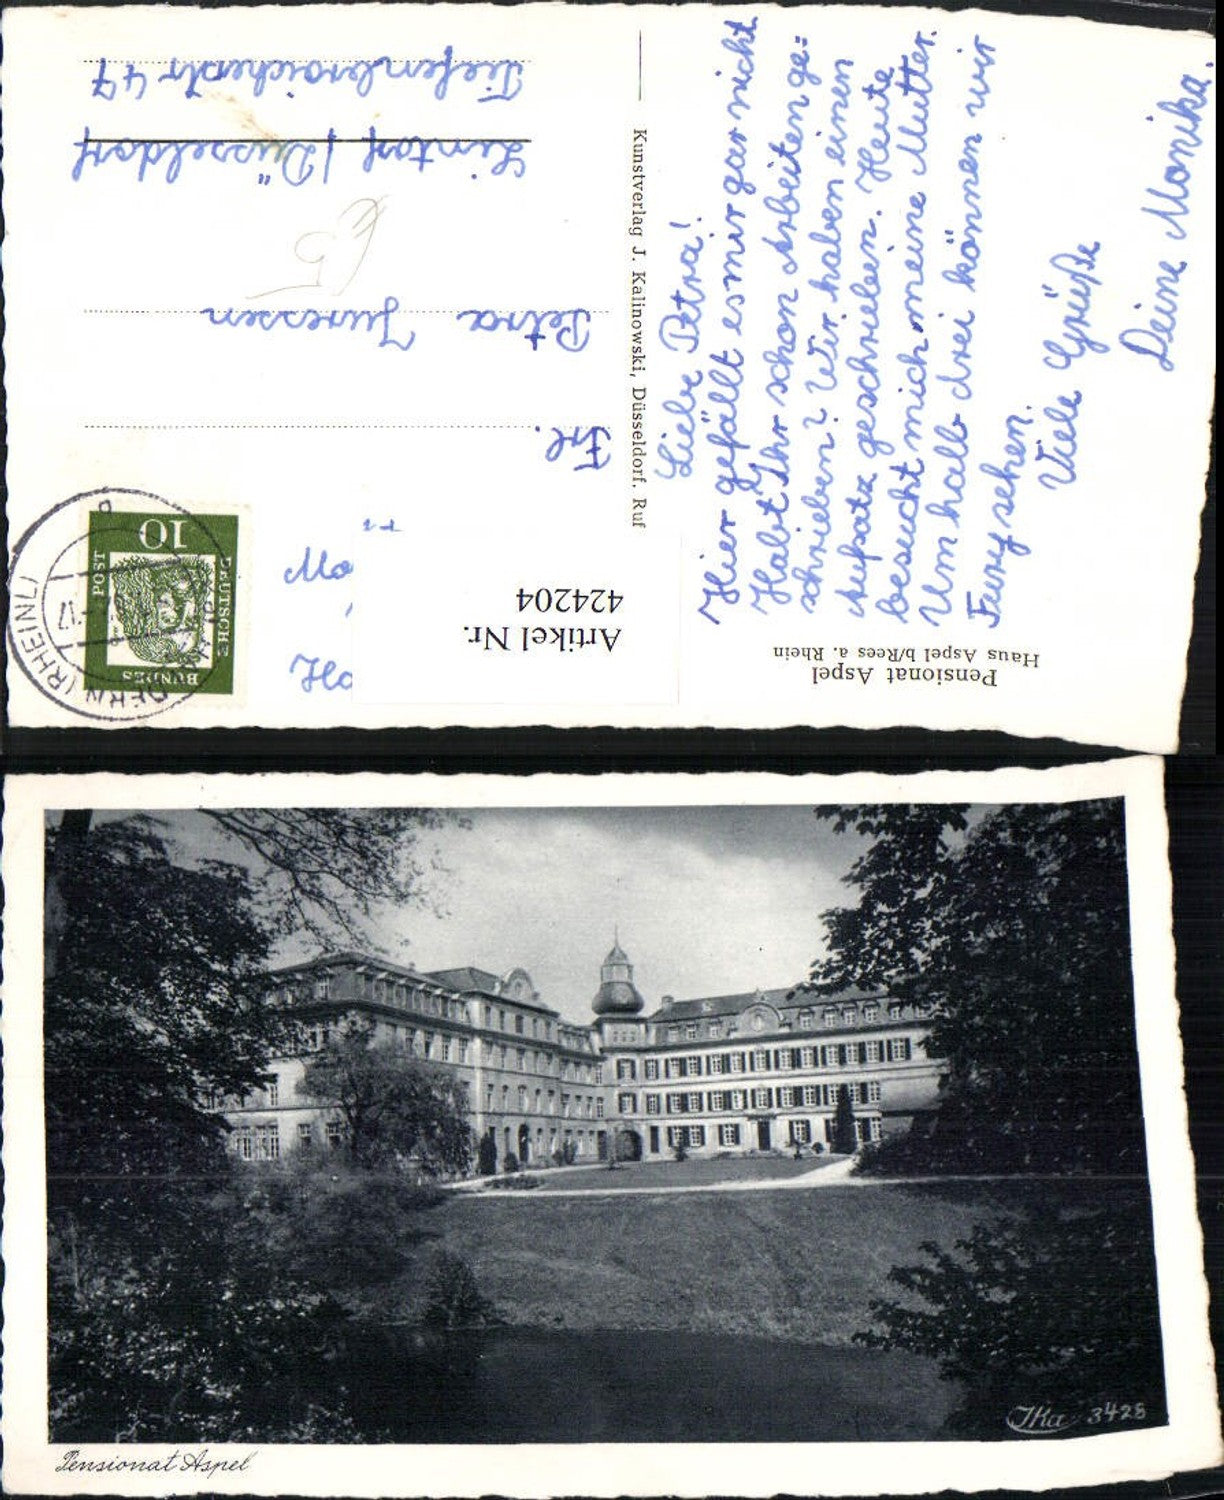 Pensionat Aspel
Haus Aspel b/Rees a. Rhein
Liebe Petra!
Hier gefällt es mir gar nicht
Habt Ihr schon Arbeiten ge=
schrieben? Wir haben einen
Aufsatz geschrieben. Heute
besucht mich meine Mutter.
Um halb drei können wir
Fury sehen.
Viele Grüße
Deine Monika.
Kunstverlag J. Kalinowski, Düsseldorf, Ruf
Artikel Nr.
424204
DEUTSCHE
BUNDES
POST
10
(RHEINL)
Frl.
Petra
Lintorf / Düsseldorf
Tiefenbroicherstr 47
JKa 3428
Pensionat Aspel